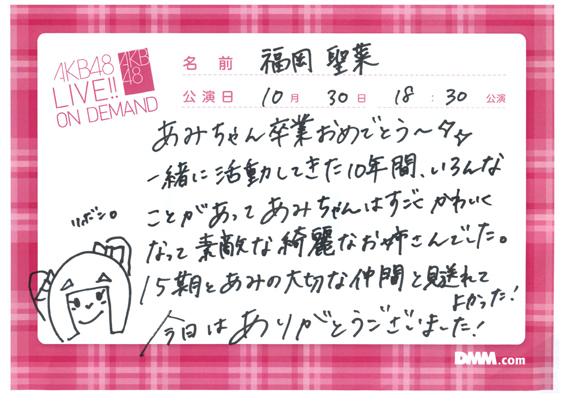 AKB48
LIVE!!
ON DEMAND
AKB
48
名前 福岡 聖菜
公演日 10月 30日 18:30 公演
あみちゃん卒業おめでとう〜☆☆
一緒に活動してきた10年間、いろんな
ことがあってあみちゃんはすごくかわいく
なって素敵な綺麗なお姉さんでした。
15期とあみの大切な仲間と見送れて
よかった!
今日はありがとうございました!
リボン。
DMM.com